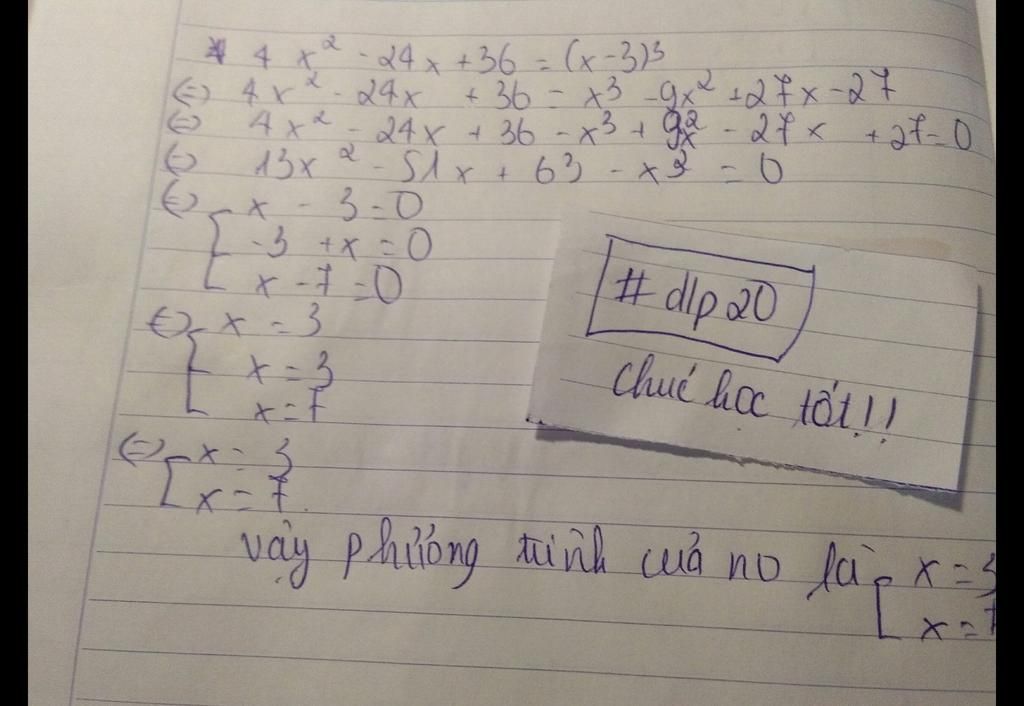 * 4x² - 24x + 36 = (x-3)³
(=) 4x² - 24x + 36 = x³ - 9x² + 27x - 27
(=) 4x² - 24x + 36 - x³ + 9x² - 27x + 27 = 0
(=) 13x² - 51x + 63 - x³ = 0
(=) [ x - 3 = 0
-3 + x = 0
x - 7 = 0
(=) [ x = 3
x = 3
x = 7
(=) [ x = 3
x = 7
vậy phương trình cuả no là [ x = 3
x = 7
#dlp20
chuć học tốt!!